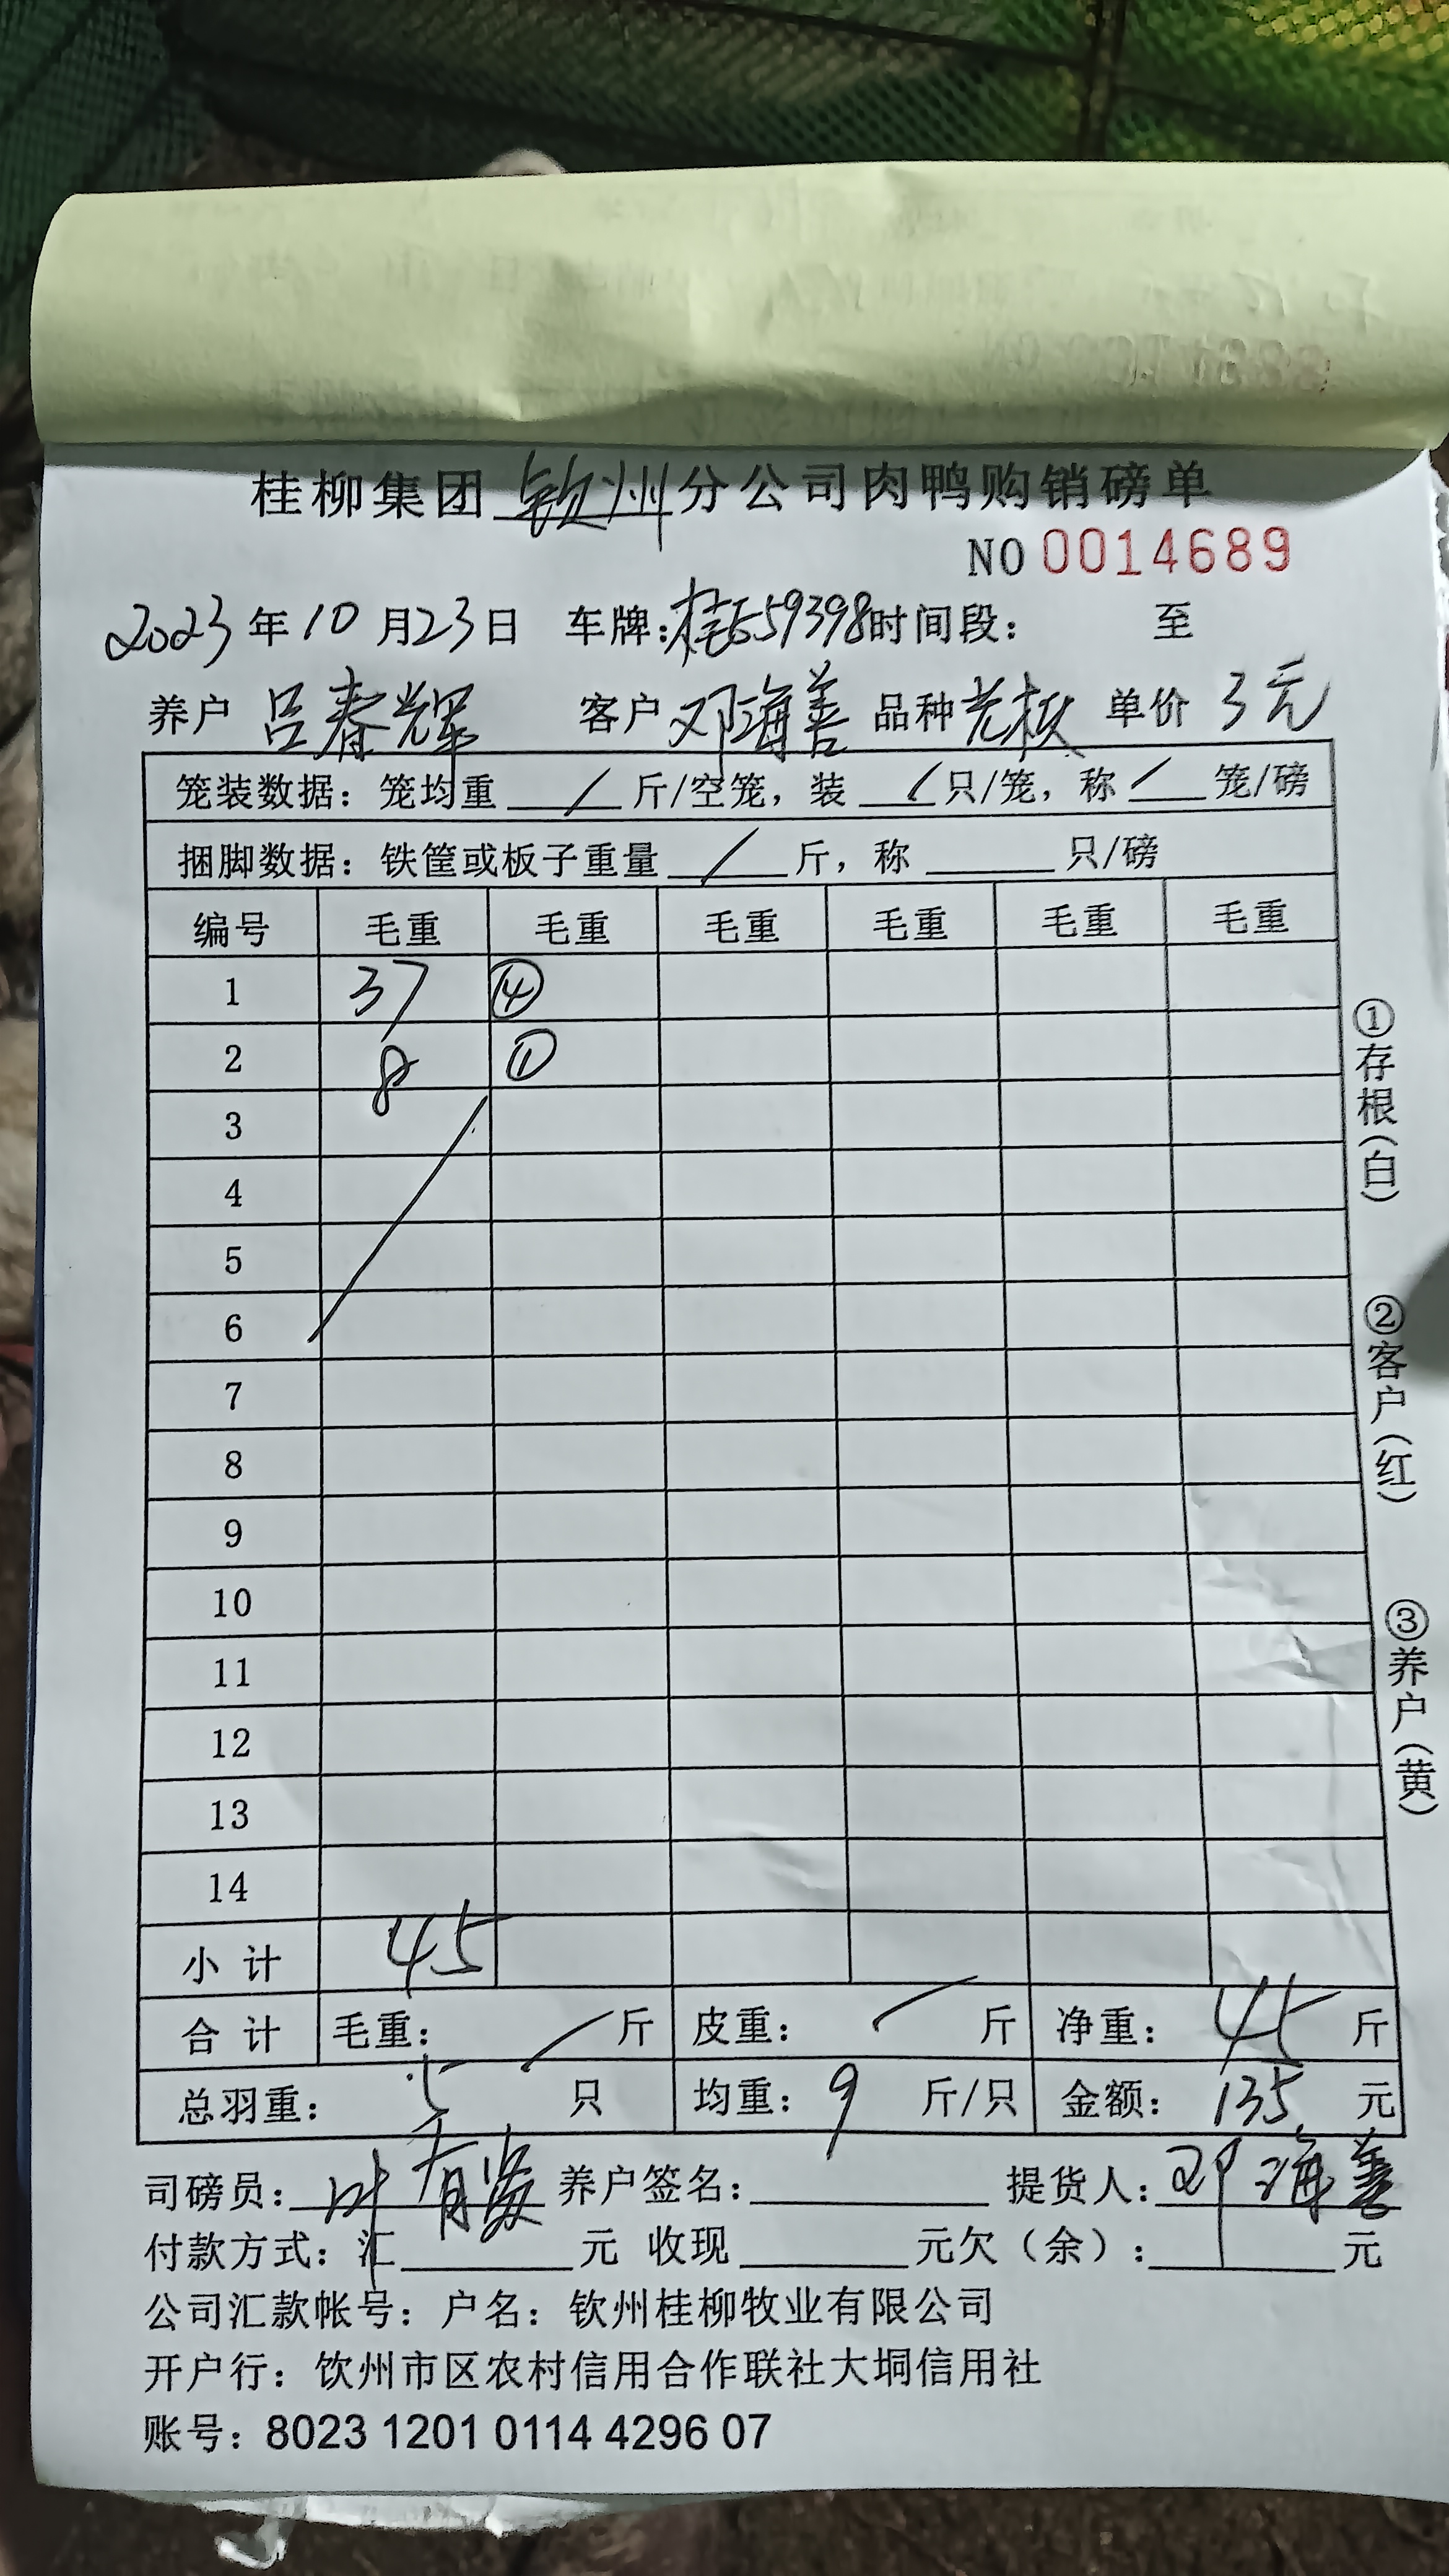 桂柳集团 钦州 分公司肉鸭购销磅单
NO 0014689
2023 年 10 月 23 日 车牌: 桂E59398 时间段: 至
养户 吕春辉 客户 邓海善 品种 单价 3元
笼装数据: 笼均重 / 斤/空笼, 装 / 只/笼, 称 / 笼/磅
捆脚数据: 铁筐或板子重量 / 斤, 称 只/磅
编号 毛重 毛重 毛重 毛重 毛重 毛重
1 37 ④
2 8 ①
3
4
5
6
7
8
9
10
11
12
13
14
小计 45
合计 毛重: / 斤 皮重: / 斤 净重: 45 斤
总羽重: 5 只 均重: 9 斤/只 金额: 135 元
司磅员: 叶有 养户签名: 提货人: 邓海善
付款方式: 汇 元 收现 元欠(余): 元
公司汇款帐号: 户名: 钦州桂柳牧业有限公司
开户行: 饮州市区农村信用合作联社大垌信用社
账号: 8023 1201 0114 4296 07
①存根(白)
②客户(红)
③养户(黄)